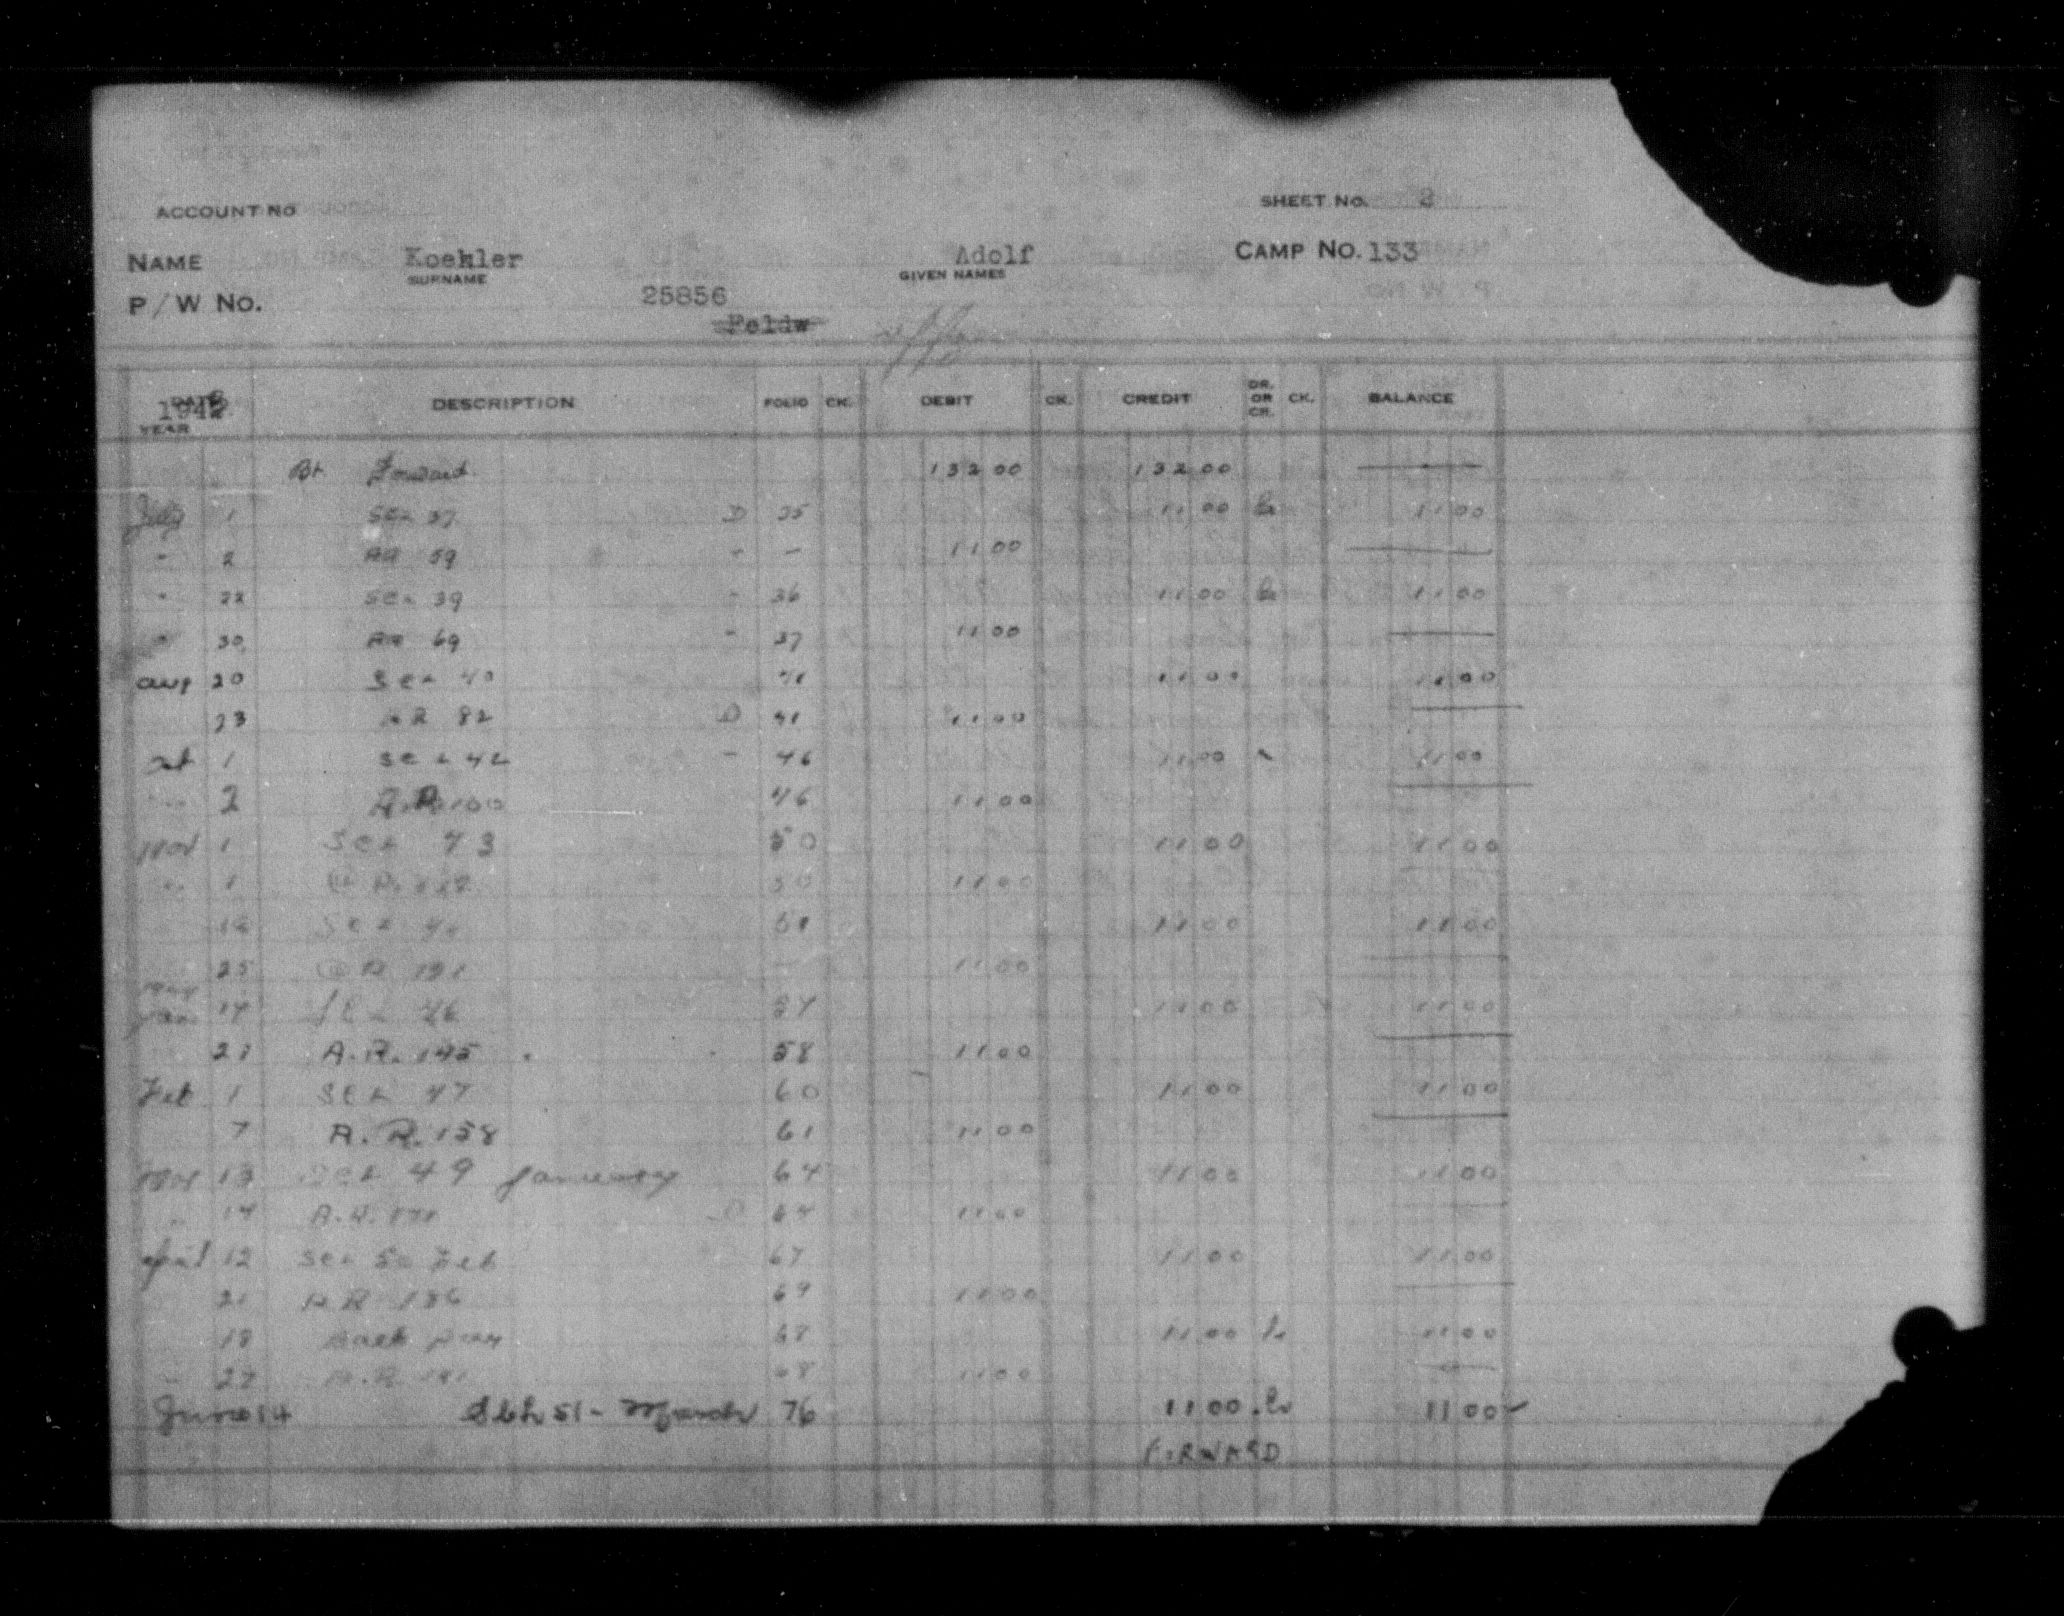 ACCOUNT NO
SHEET NO. 2
NAME Koehler Adolf CAMP NO. 133
SURNAME GIVEN NAMES
P/W No. 25856
Feldw
DATE DESCRIPTION FOLIO CK. DEBIT CK. CREDIT DR. OR CR. CK. BALANCE
194
YEAR
Bt Forward 132 00 132 00
July 1 Sch 37 D 35 11 00 Cr 11 00
" 2 AR 59 - - 11 00
" 22 Sch 39 - 36 11 00 Cr 11 00
" 30 AR 69 - 37 11 00
Aug 20 Sch 40 41 11 00 11 00
23 AR 82 D 41 11 00
Oct 1 Sch 42 - 46 11 00 11 00
2 A.R. 100 46 11 00
Nov 1 Sch 43 50 11 00 11 00
1 A.R. 50 11 00
Sch 51 11 00 11 00
25 A R 131 11 00
Jan 17 Sch 46 57 11 00 11 00
21 A.R. 145 58 11 00
Feb 1 Sch 47 60 11 00 11 00
7 A.R. 158 61 11 00
13 Sch 49 January 64 11 00 11 00
14 A.R. 171 D 64 11 00
April 12 Sch 50 Feb 67 11 00 11 00
21 A R 186 69 11 00
18 Back pay 68 11 00 Cr 11 00
27 A.R. 191 68 11 00
June 14 Sch 51 - March 76 11 00 Cr 11 00
FORWARD